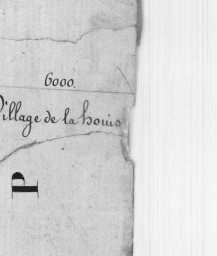 6000.
Village de la houis
P